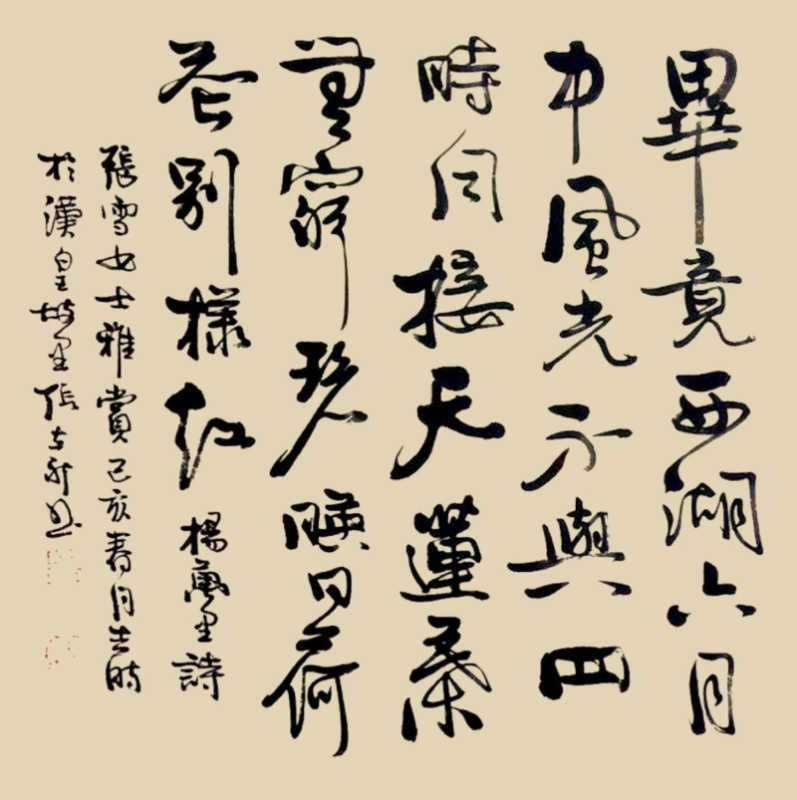 畢竟西湖六月
中風光不與四
時同接天蓮葉
無窮碧暎日荷
花別樣紅 楊萬里詩
張雪女士雅賞己亥春月吉時
於漢皇坡里張